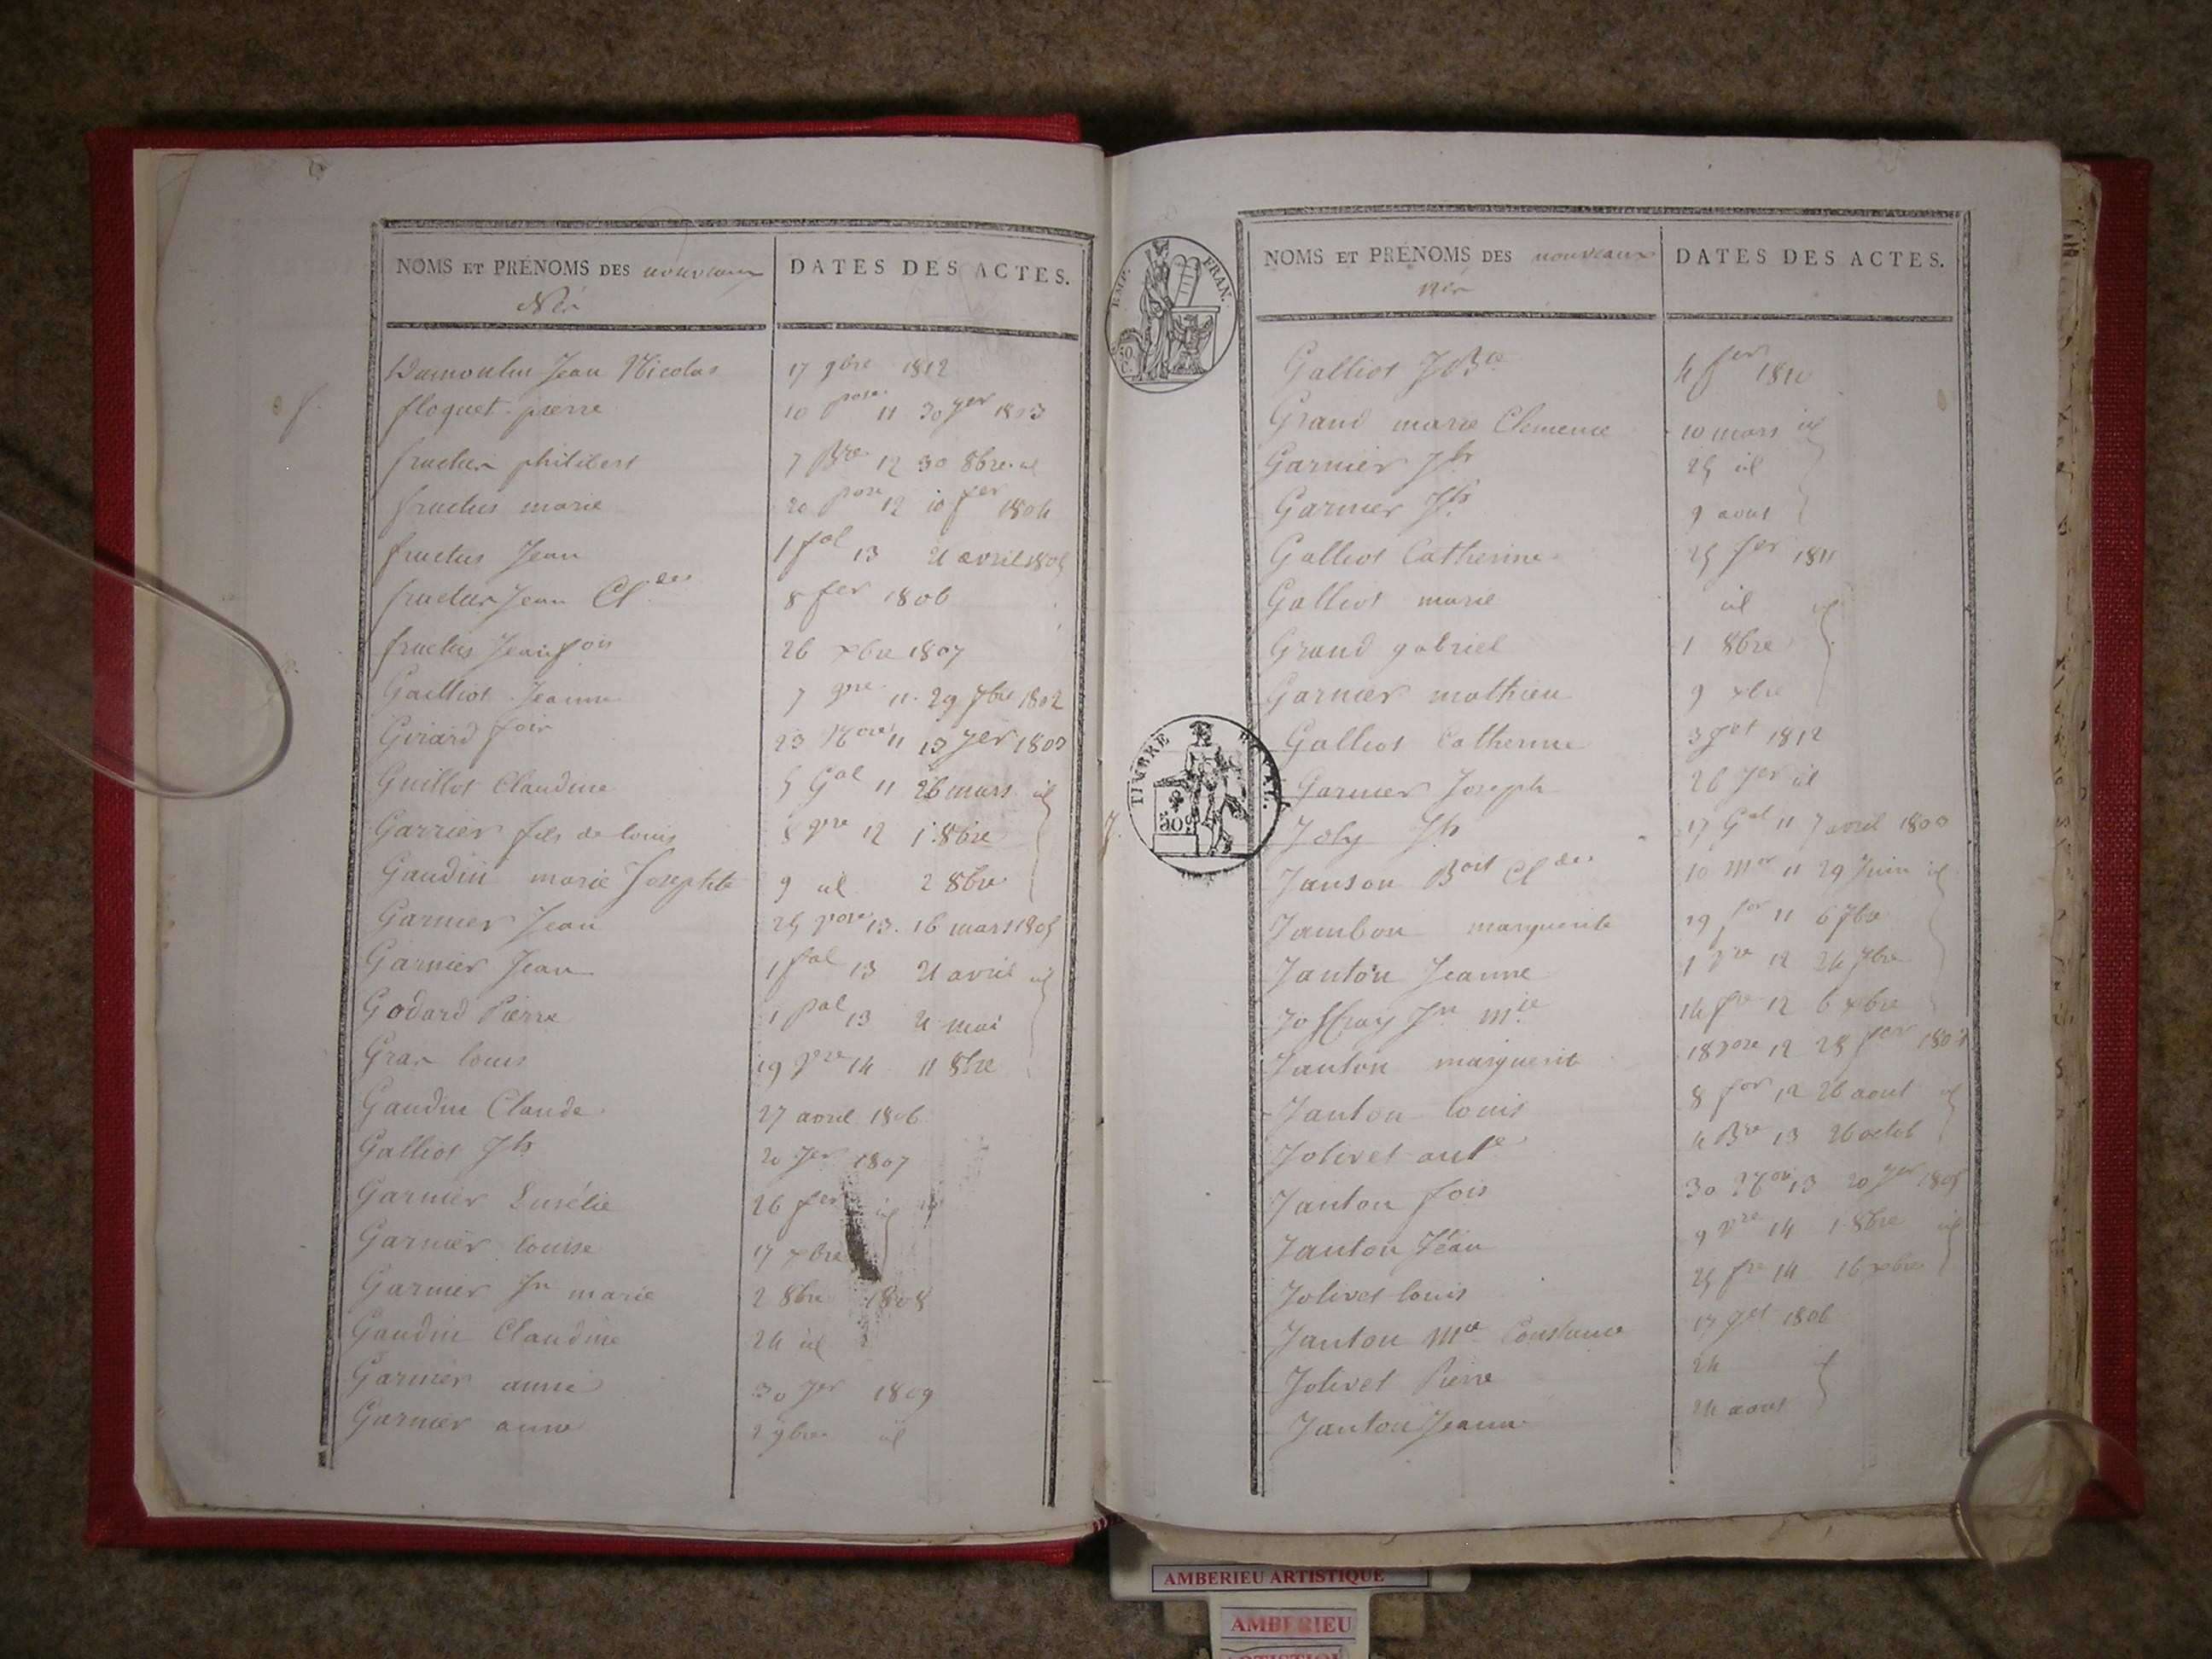 NOMS ET PRÉNOMS DES nouveaux Nés
DATES DES ACTES.
Dumoulin Jean Nicolas 17 9bre 1812
f.
floquet pierre 10 pose 11 30 Jer 1803
fructus philibert 7 Bre 12 30 8bre id
fructus marie 20 pose 12 10 fer 1804
fructus Jean 1 fal 13 21 avril 1805
fructus Jean Cldes 8 fer 1806
fructus Jean fois 26 xbre 1807
Galliot Jeanne 7 11 29 7bre 1802
Girard fois 23 11 13 Jer 1803
Guillot Claudine 5 Gal 11 26 mars id
Garnier fils de louis 8 vre 12 1 8bre
Gaudin marie Josephte 9 id 2 8bre
Garnier Jean 25 vose 13. 16 mars 1805
Garnier Jean 1 fal 13 21 avril id
Godard Pierre 1 pal 13 21 mai
Gras louis 19 vre 14 11 8bre
Gaudin Claude 27 avril 1806
Galliot Jh 20 Jer 1807
Garnier 26 fer id
Garnier louise 17 xbre
Garnier Jn marie 2 8bre 1808
Gaudin Claudine 24 id
Garnier anne 30 Jer 1809
Garnier anne 2 9bre id
NOMS ET PRÉNOMS DES nouveaux nés
DATES DES ACTES.
EMP. FRAN.
50 C.
Galliot J Bte 4 fer 1810
Grand marie Clemence 10 mars id
Garnier Jh 25 id
Garnier Jh 9 aout
Galliot Catherine 25 Jer 1811
Galliot marie id id
Grand gabriel 1 8bre
Garnier mathieu 9 xbre
TIMBRE
50
Galliot Catherine 3 1812
Garnier Joseph 26 Jer id
J.
Joly Jh 17 Gal 11 7 avril 1803
Janson Boit Cldes 10 mor 11 29 Juin id
Jambon marguerite 19 for 11 6 7bre
Janton Jeanne 1 vre 12 24 7bre
Joffray Jn mie 14 fre 12 6 xbre
Janton marguerite 18 vose 12
Janton louis 8 for 12 26 aout id
Jolivet ante 4 Bre 13 26 octob
Janton fois 30 13 20 Jer 1805
Janton Jean 9 vre 14 1 8bre id
Jolivet louis 25 fre 14 16 xbre
Janton Mie Constance 17 1806
Jolivet Pierre 24 id
Janton Jeanne 24 aout
AMBERIEU ARTISTIQUE
AMBERIEU
ARTISTIQUE